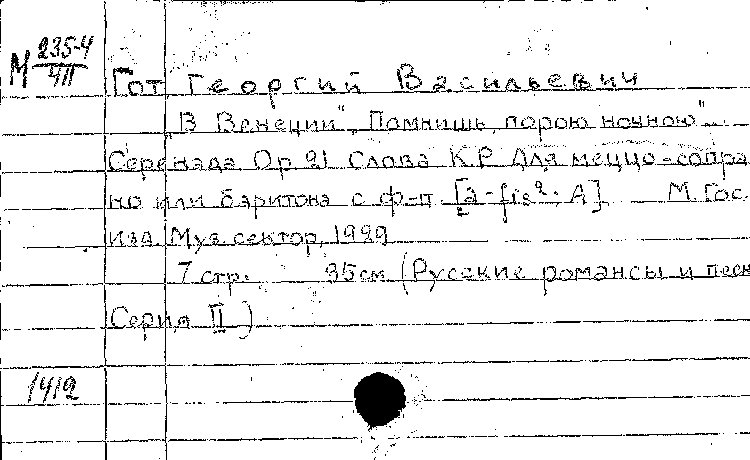 М 235-4
411
Гот Георгий Васильевич
"В Венеции", "Помнишь, порою ночною"...
Серенада Op. 21 Слова К.Р. Для меццо-сопра
но или баритона с ф-п. [a-fis²; A]. М. Гос.
изд. Муз. сектор, 1929
7 стр. 35 см (Русские романсы и песн
Серия II)
1412